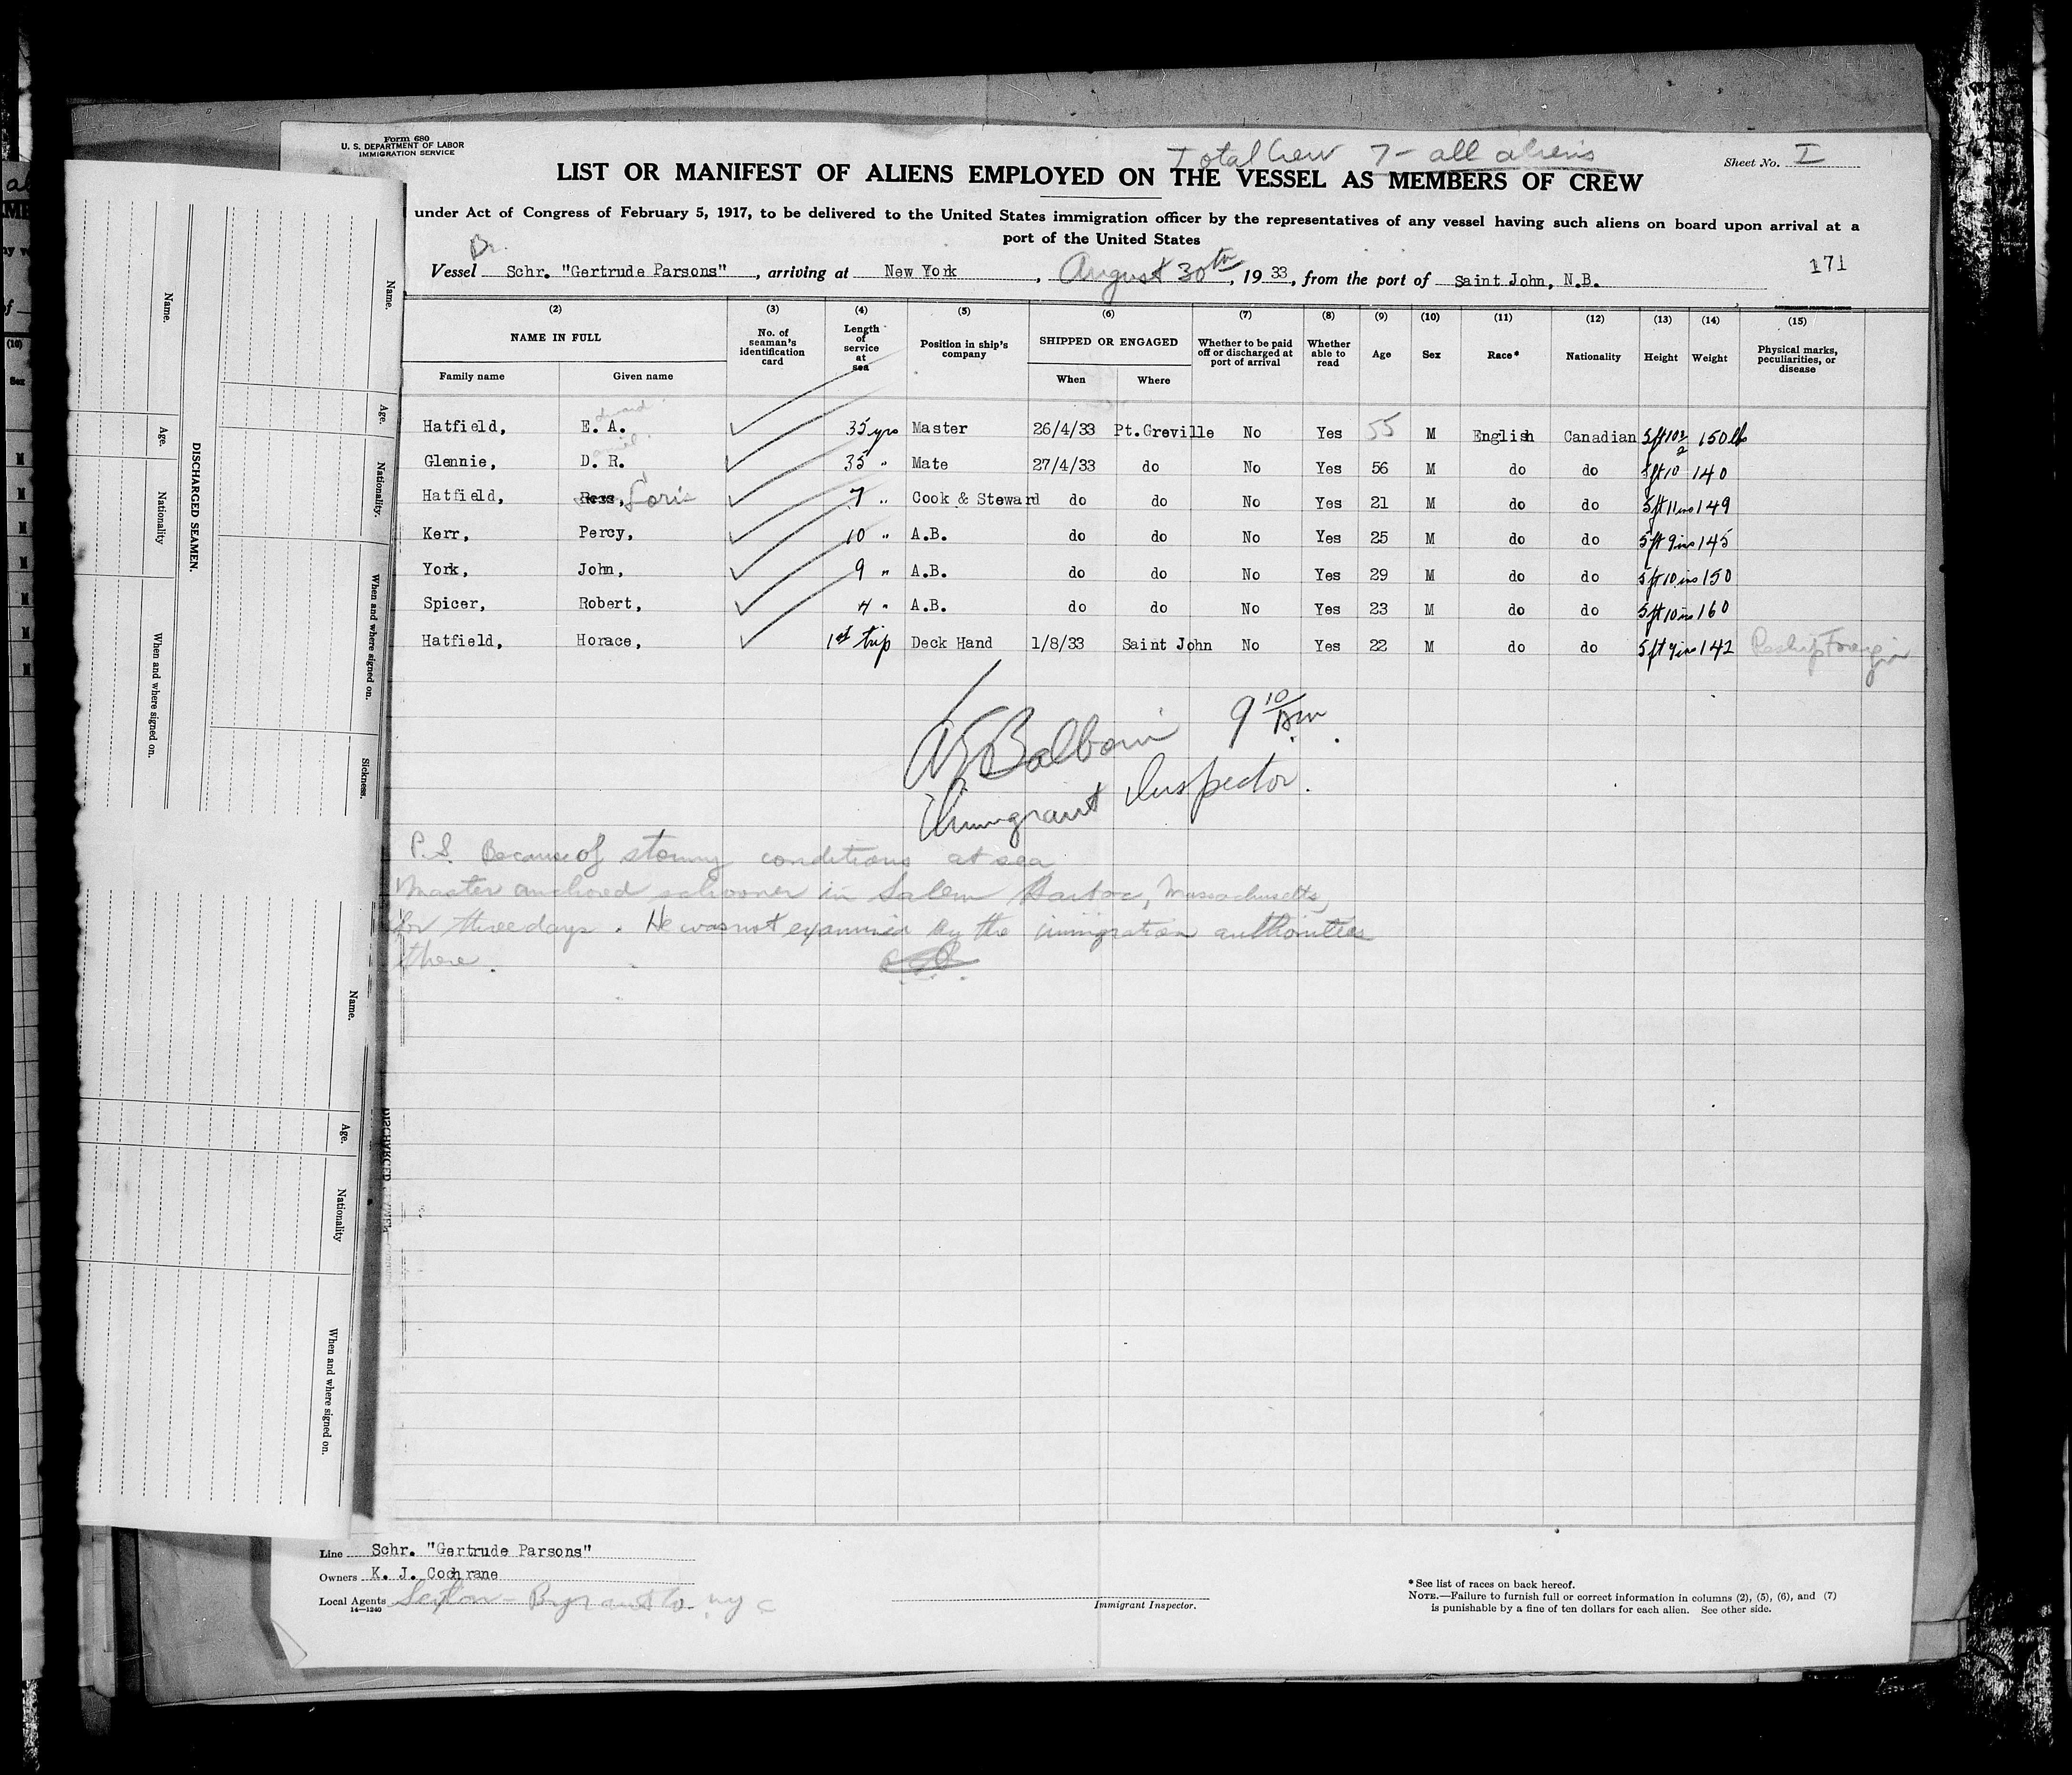 Form 680
U. S. DEPARTMENT OF LABOR
IMMIGRATION SERVICE
Total Crew 7 - all aliens
Sheet No. I
LIST OR MANIFEST OF ALIENS EMPLOYED ON THE VESSEL AS MEMBERS OF CREW
under Act of Congress of February 5, 1917, to be delivered to the United States immigration officer by the representatives of any vessel having such aliens on board upon arrival at a
port of the United States
Br.
Vessel Schr. "Gertrude Parsons", arriving at New York, August 30th, 1933, from the port of Saint John, N.B.
171
(2) (3) (4) (5) (6) (7) (8) (9) (10) (11) (12) (13) (14) (15)
NAME IN FULL No. of seaman's identification card Length of service at sea Position in ship's company SHIPPED OR ENGAGED Whether to be paid off or discharged at port of arrival Whether able to read Age Sex Race* Nationality Height Weight Physical marks, peculiarities, or disease
Family name Given name When Where
Hatfield, E. A. 35 yrs Master 26/4/33 Pt.Greville No Yes 55 M English Canadian 5ft10½ 150 lbs
Glennie, D. R. 35 " Mate 27/4/33 do No Yes 56 M do do 5ft10 140
Hatfield, Ross, 7 " Cook & Steward do do No Yes 21 M do do 5ft11ins 149
Kerr, Percy, 10 " A.B. do do No Yes 25 M do do 5ft9ins 145
York, John, 9 " A.B. do do No Yes 29 M do do 5ft10ins 150
Spicer, Robert, 4 " A.B. do do No Yes 23 M do do 5ft10ins 160
Hatfield, Horace, 1st trip Deck Hand 1/8/33 Saint John No Yes 22 M do do 5ft9ins 142
9 10/AM
Immigrant Inspector.
P.S. Because of stormy conditions at sea
Master anchored schooner in Salem Harbor, Massachusetts,
for three days. He was not examined by the immigration authorities
there.
Line Schr. "Gertrude Parsons"
Owners K. J. Cochrane
Local Agents
14—1240
Immigrant Inspector.
*See list of races on back hereof.
NOTE.—Failure to furnish full or correct information in columns (2), (5), (6), and (7)
is punishable by a fine of ten dollars for each alien. See other side.
DISCHARGED SEAMEN.
Name. Age. Nationality. When and where signed on. Sickness.
Name. Age. Nationality When and where signed on.
Name. Age. Nationality When and where signed on.